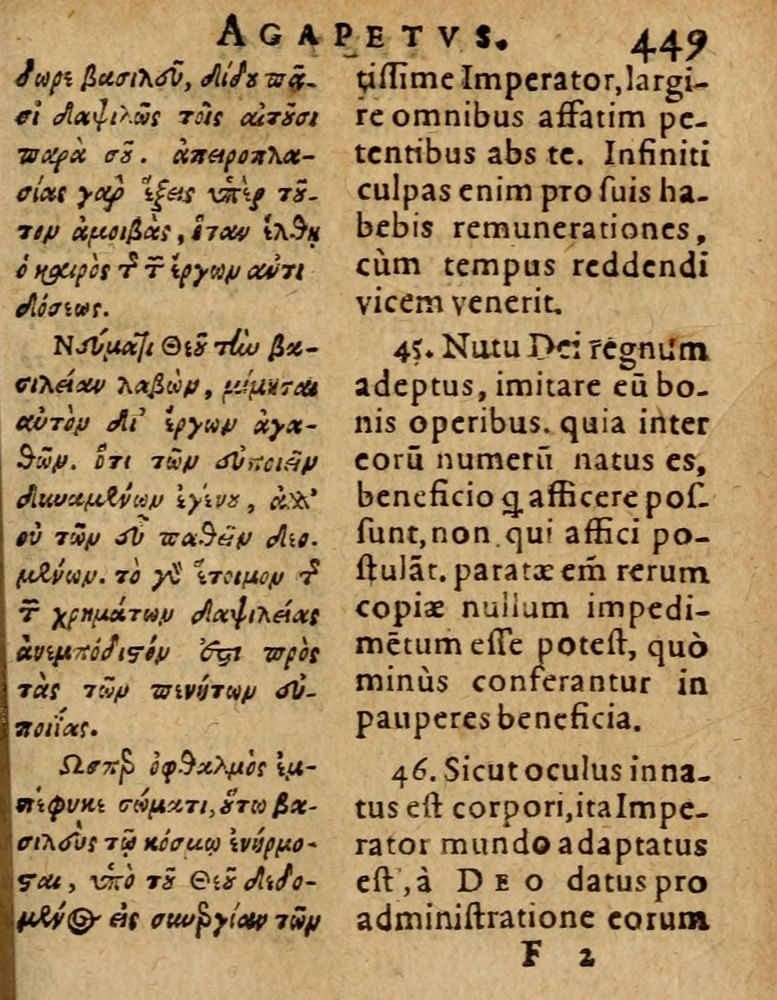 AGAPETVS. 449
δωρε βασιλεῦ, δίδου πᾶ-
σι δαψιλῶς τοῖς αἰτοῦσι
παρὰ σοῦ. ἀπειροπλα-
σίας γὰρ ἕξεις ὑπὲρ τού-
των ἀμοιβὰς, ὅταν ἔλθῃ
ὁ καιρὸς τῆς τῶν ἔργων ἀντι
δόσεως.
Νεύματι Θεοῦ τὴν βα-
σιλείαν λαβὼν, μίμησαι
αὐτὸν δι' ἔργων ἀγα-
θῶν. ὅτι τῶν εὐποιεῖν
δυναμένων ἐγένου, ἀλλ'
οὐ τῶν εὖ παθεῖν δεο.
μένων. τὸ γὰρ ἕτοιμον τῆς
τῶν χρημάτων δαψιλείας
ἀνεμπόδιστόν ἐστι πρὸς
τὰς τῶν πενήτων εὐ-
ποιΐας.
Ωσπερ ὀφθαλμὸς ἐμ-
πέφυκε σώματι, οὕτω βα-
σιλεὺς τῷ κόσμῳ ἐνήρμο-
σται, ὑπὸ τοῦ Θεοῦ δεδο-
μένος εἰς συνεργίαν τῶν
tissime Imperator, largi-
re omnibus affatim pe-
tentibus abs te. Infiniti
culpas enim pro suis ha-
bebis remunerationes,
cùm tempus reddendi
vicem venerit.
45. Nutu Dei regnum
adeptus, imitare eū bo-
nis operibus. quia inter
eorū numerū natus es,
beneficio q afficere pos-
sunt, non qui affici po-
stulāt. paratæ em̄ rerum
copiæ nullum impedi-
mētum esse potest, quò
minùs conferantur in
pauperes beneficia.
46. Sicut oculus inna-
tus est corpori, ita Impe-
rator mundo adaptatus
est, à DEO datus pro
administratione eorum
F 2